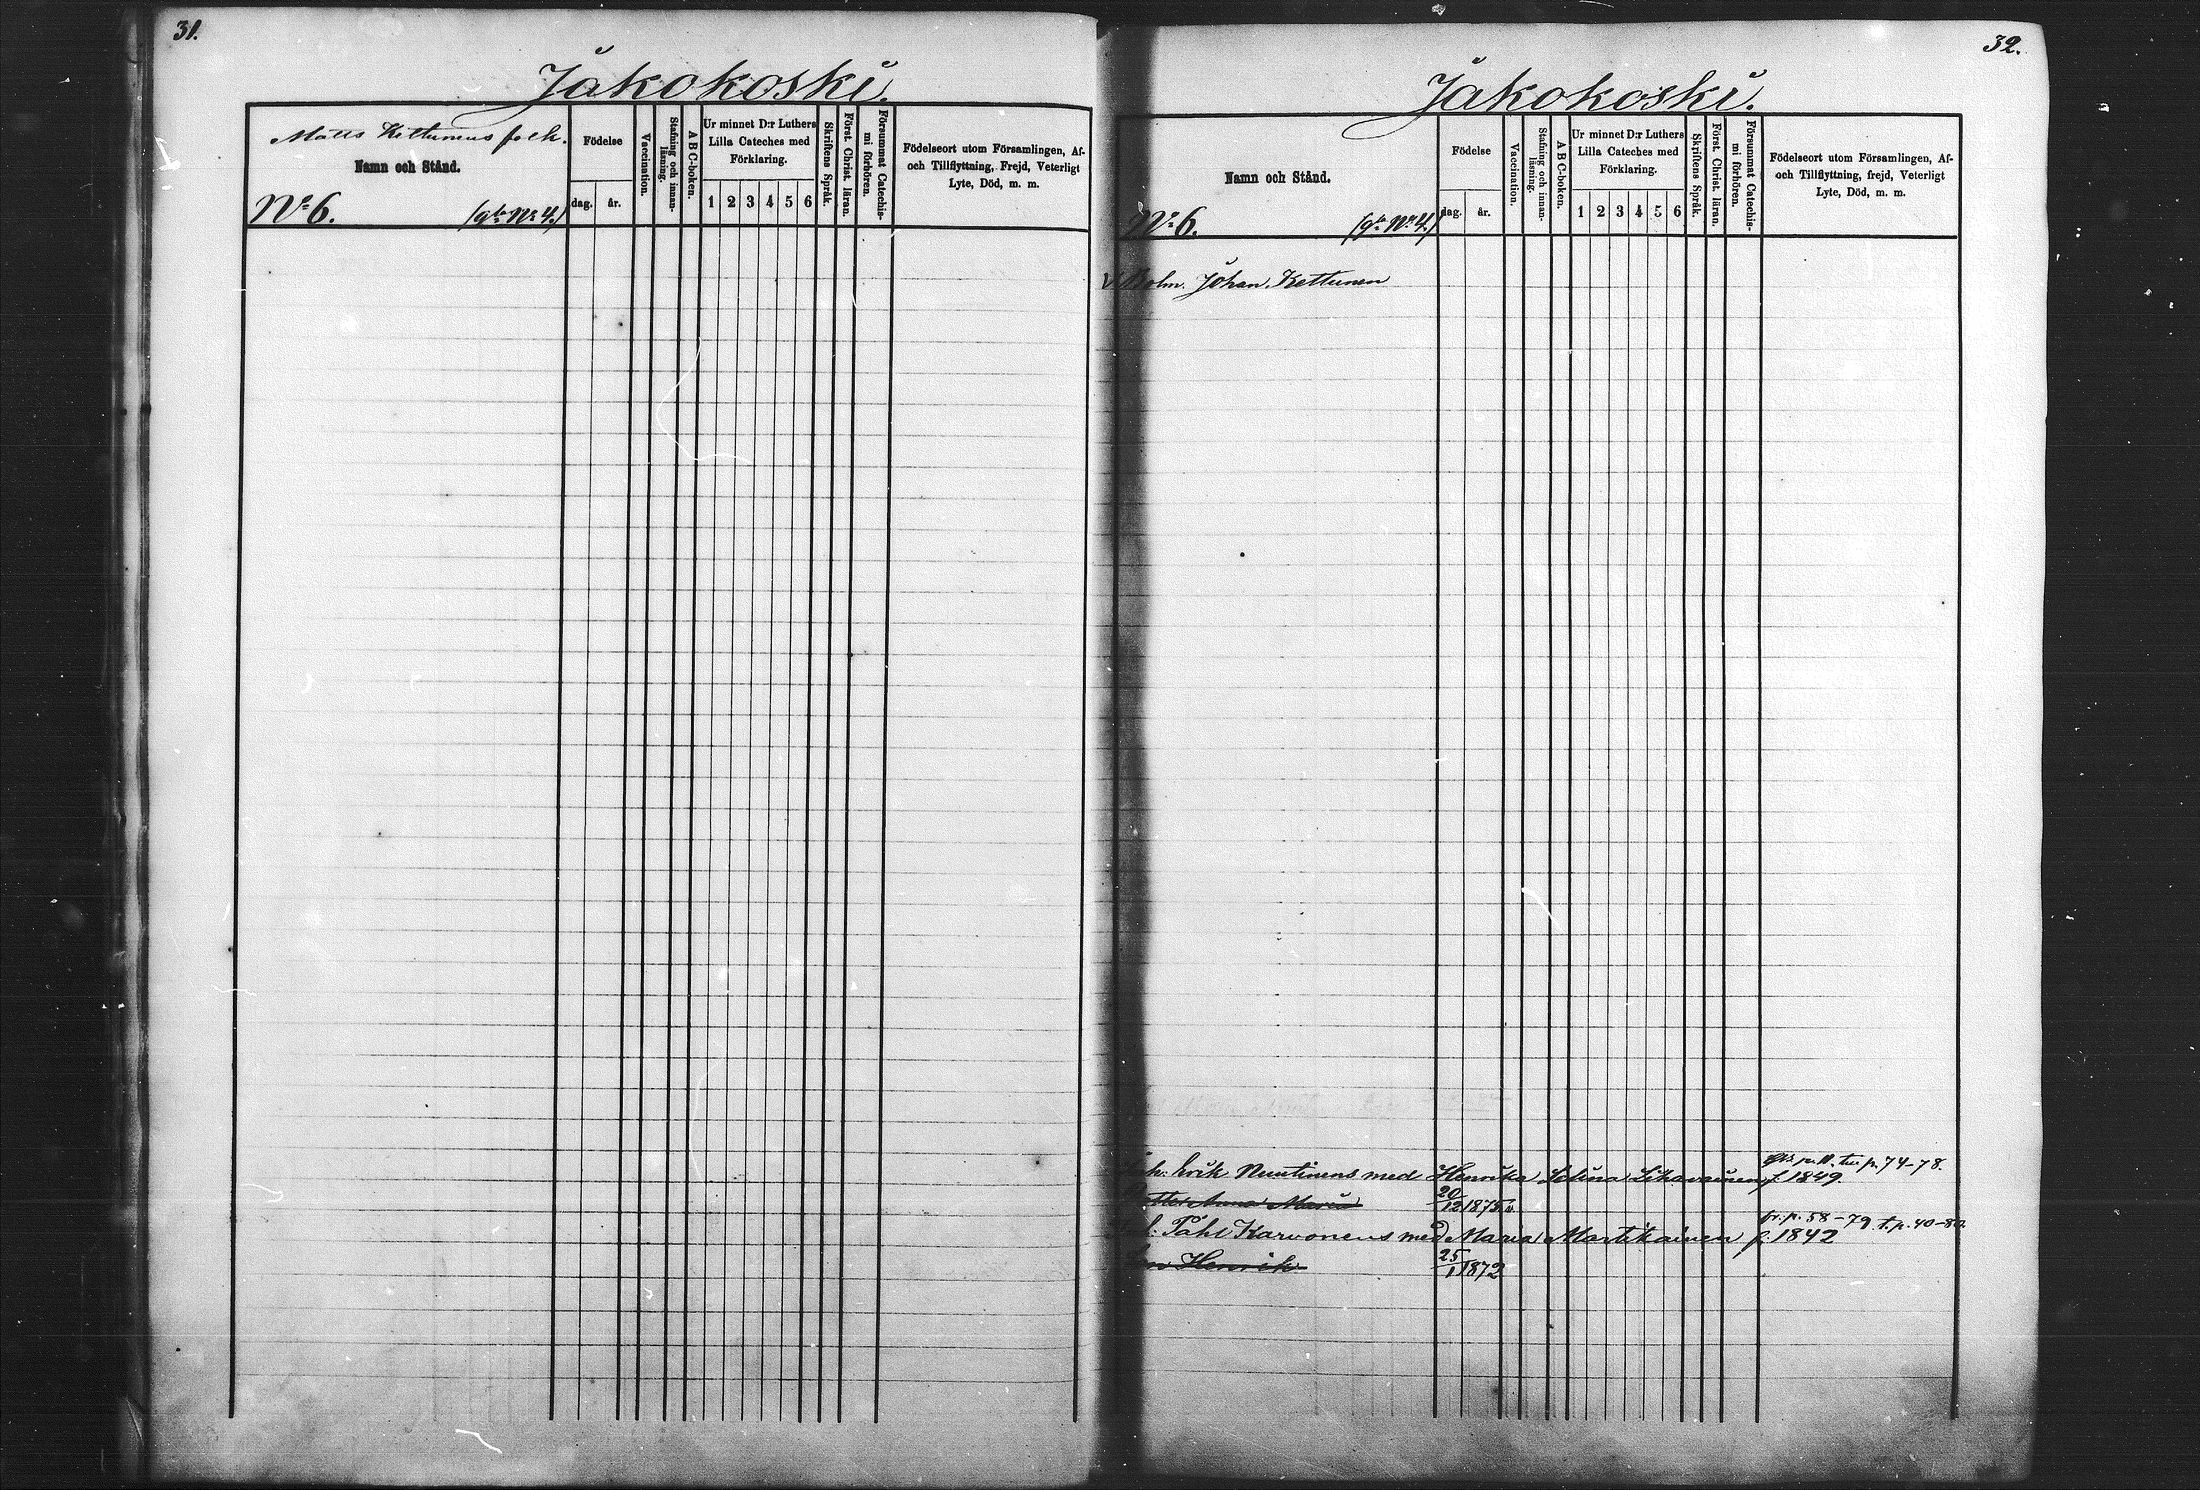 31.
Jakokoski.
Matts Kettunens folk.
Namn och Stånd.
No 6.
(gla No 4.)
Födelse
dag.
år.
Vaccination.
Stafning och innan-
läsning.
A B C-boken.
Ur minnet D:r Luthers
Lilla Cateches med
Förklaring.
1 2 3 4 5 6
Skriftens Språk.
Först. Christ. läran.
Försummat Catechis-
mi förhören.
Födelseort utom Församlingen, Af-
och Tillflyttning, Frejd, Veterligt
Lyte, Död, m. m.
32.
Jakokoski.
Namn och Stånd.
No 6.
(gla No 4.)
Födelse
dag.
år.
Vaccination.
Stafning och innan-
läsning.
A B C-boken.
Ur minnet D:r Luthers
Lilla Cateches med
Förklaring.
1 2 3 4 5 6
Skriftens Språk.
Först. Christ. läran.
Försummat Catechis-
mi förhören.
Födelseort utom Församlingen, Af-
och Tillflyttning, frejd, Veterligt
Lyte, Död, m. m.
Bolm. Johan Kettunen
p. 74-78.
Erik Nuutinens med Henrika Lovina Lihavainen f. 1849.
Anna Maria 20/12 1875
fr. p. 58-79. t. p. 40-80
Påhl Karvonens med Maria Martikainen f. 1842
Henrik 25/1 1872